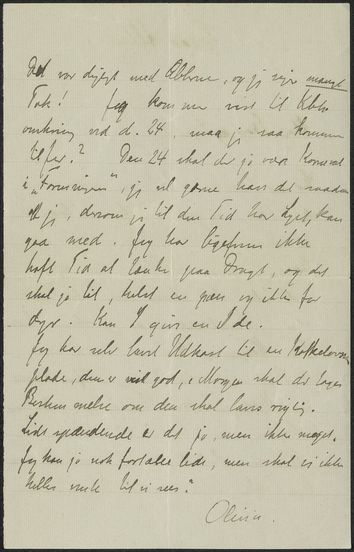 Det var dejligt med Æblerne, og jeg siger mange
Tak! Jeg kommer vist til Kbh.
omkring ved d. 24, maa jeg saa komme
til jer? Den 24 skal der jo være Karneval
i "Foreningen", jeg vil gerne have det saadan
at jeg, dersom jeg til den Tid har Lyst, kan
gaa med. Jeg har ligefrem ikke
haft Tid at tænke paa Dragt, og det
skal jo til, helst en pæn og ikke for
dyr. Kan I give en Ide.
Jeg har selv lavet Udkast til en Kakkelovns
plade, den er god, i Morgen skal der tages
Bestemmelse om den skal laves rigtig.
Lidt spændende er det jo, men ikke meget.
Jeg kan jo nok fortælle lidt, men skal vi ikke
hellere vente til vi sees?
Olivia.